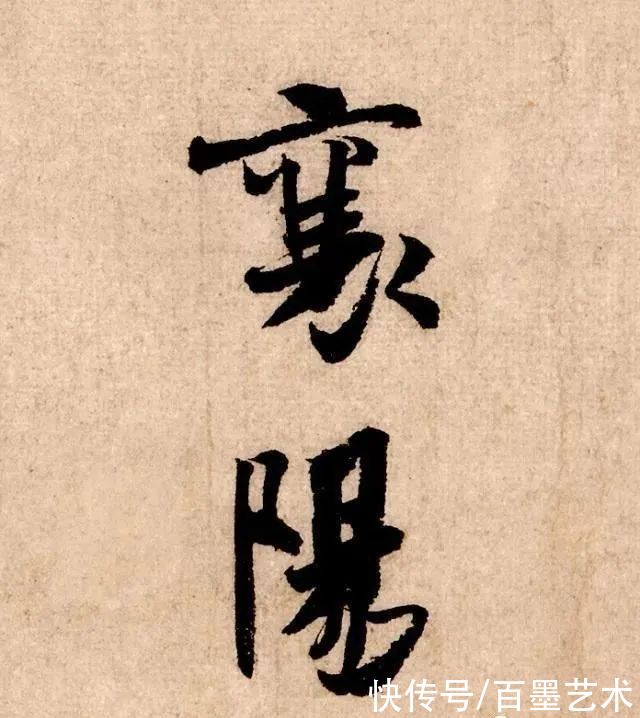 襄陽
快传号/百墨艺术